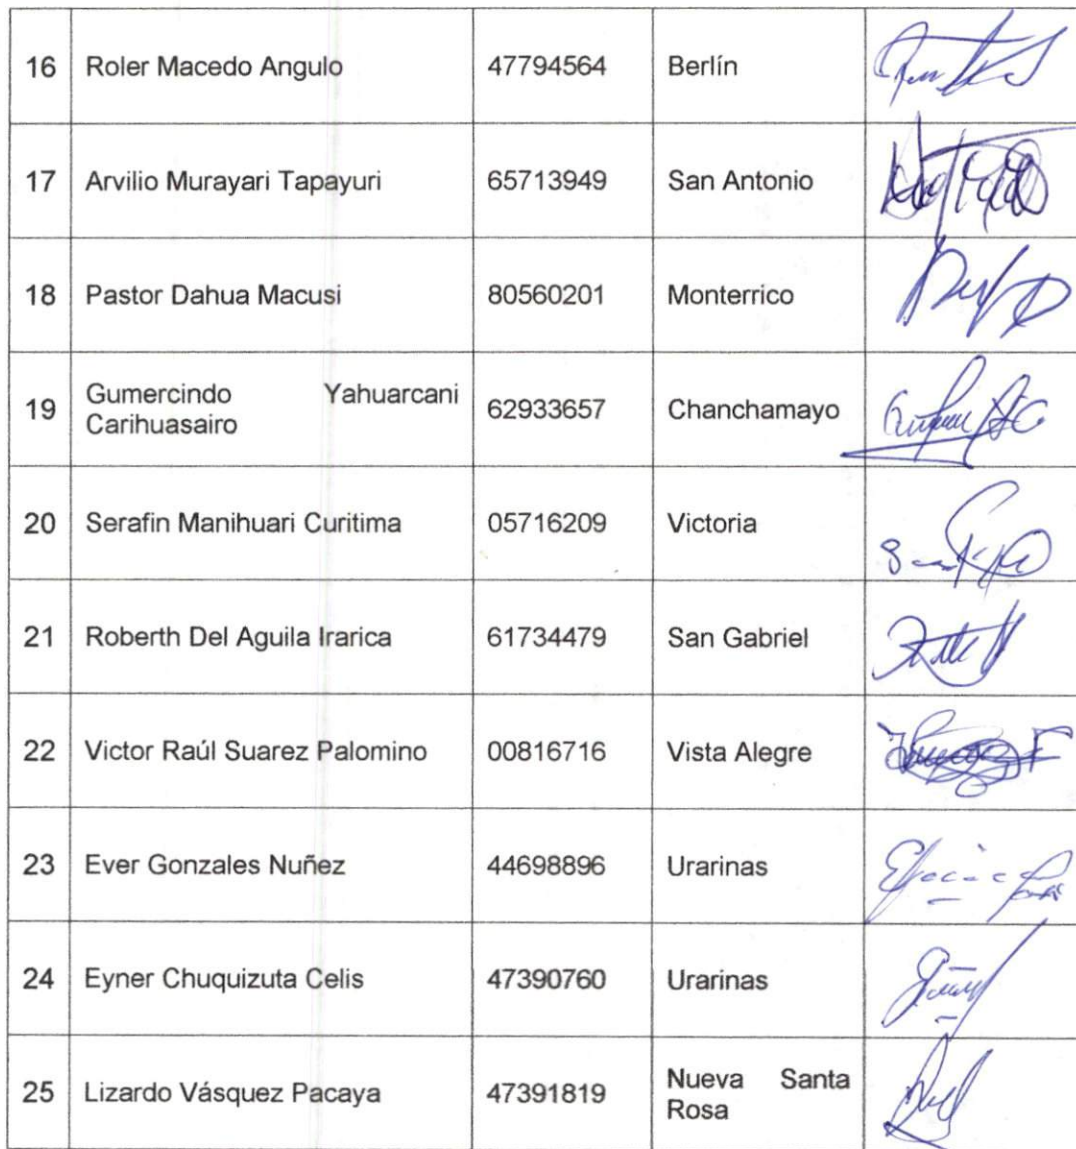 16 Roler Macedo Angulo 47794564 Berlín
17 Arvilio Murayari Tapayuri 65713949 San Antonio
18 Pastor Dahua Macusi 80560201 Monterrico
19 Gumercindo Yahuarcani
Carihuasairo 62933657 Chanchamayo
20 Serafin Manihuari Curitima 05716209 Victoria
21 Roberth Del Aguila Irarica 61734479 San Gabriel
22 Victor Raúl Suarez Palomino 00816716 Vista Alegre
23 Ever Gonzales Nuñez 44698896 Urarinas
24 Eyner Chuquizuta Celis 47390760 Urarinas
25 Lizardo Vásquez Pacaya 47391819 Nueva Santa
Rosa